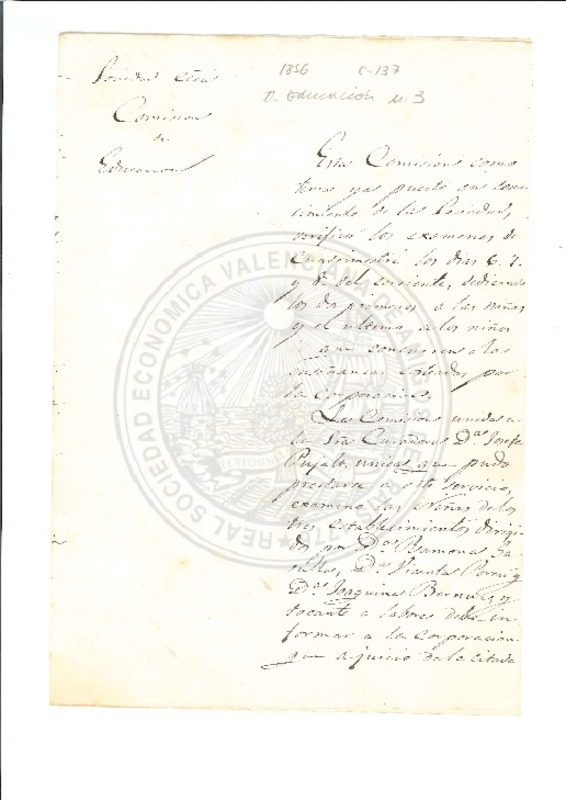 1856 C-137
D. Educación n. 3
Sociedad Econ.
Comision
de
Educacion
Esta Comision como
tenia ya puesto en cono-
cimiento de la Sociedad,
verificó los examenes de
Cuadrimestre los dias 6. 7.
y 8. del corriente, dedicando
los dos primeros a las niñas
y el ultimo a los niños
que concurren a las
enseñanzas costeadas por
la Corporacion.
La Comision unida a
la Sra. Curadora Da. Josefa
Pujals, unica que pudo
prestarse a este servicio,
examinó las Niñas de los
tres establecimientos dirigi-
dos por Da. Ramona
Da. Vicenta y
Da. Joaquina y
tocante a labores debe in-
formar a la corporacion
que a juicio de la citada
REAL SOCIEDAD ECONOMICA VALENCIANA DE AMIGOS DEL PAIS